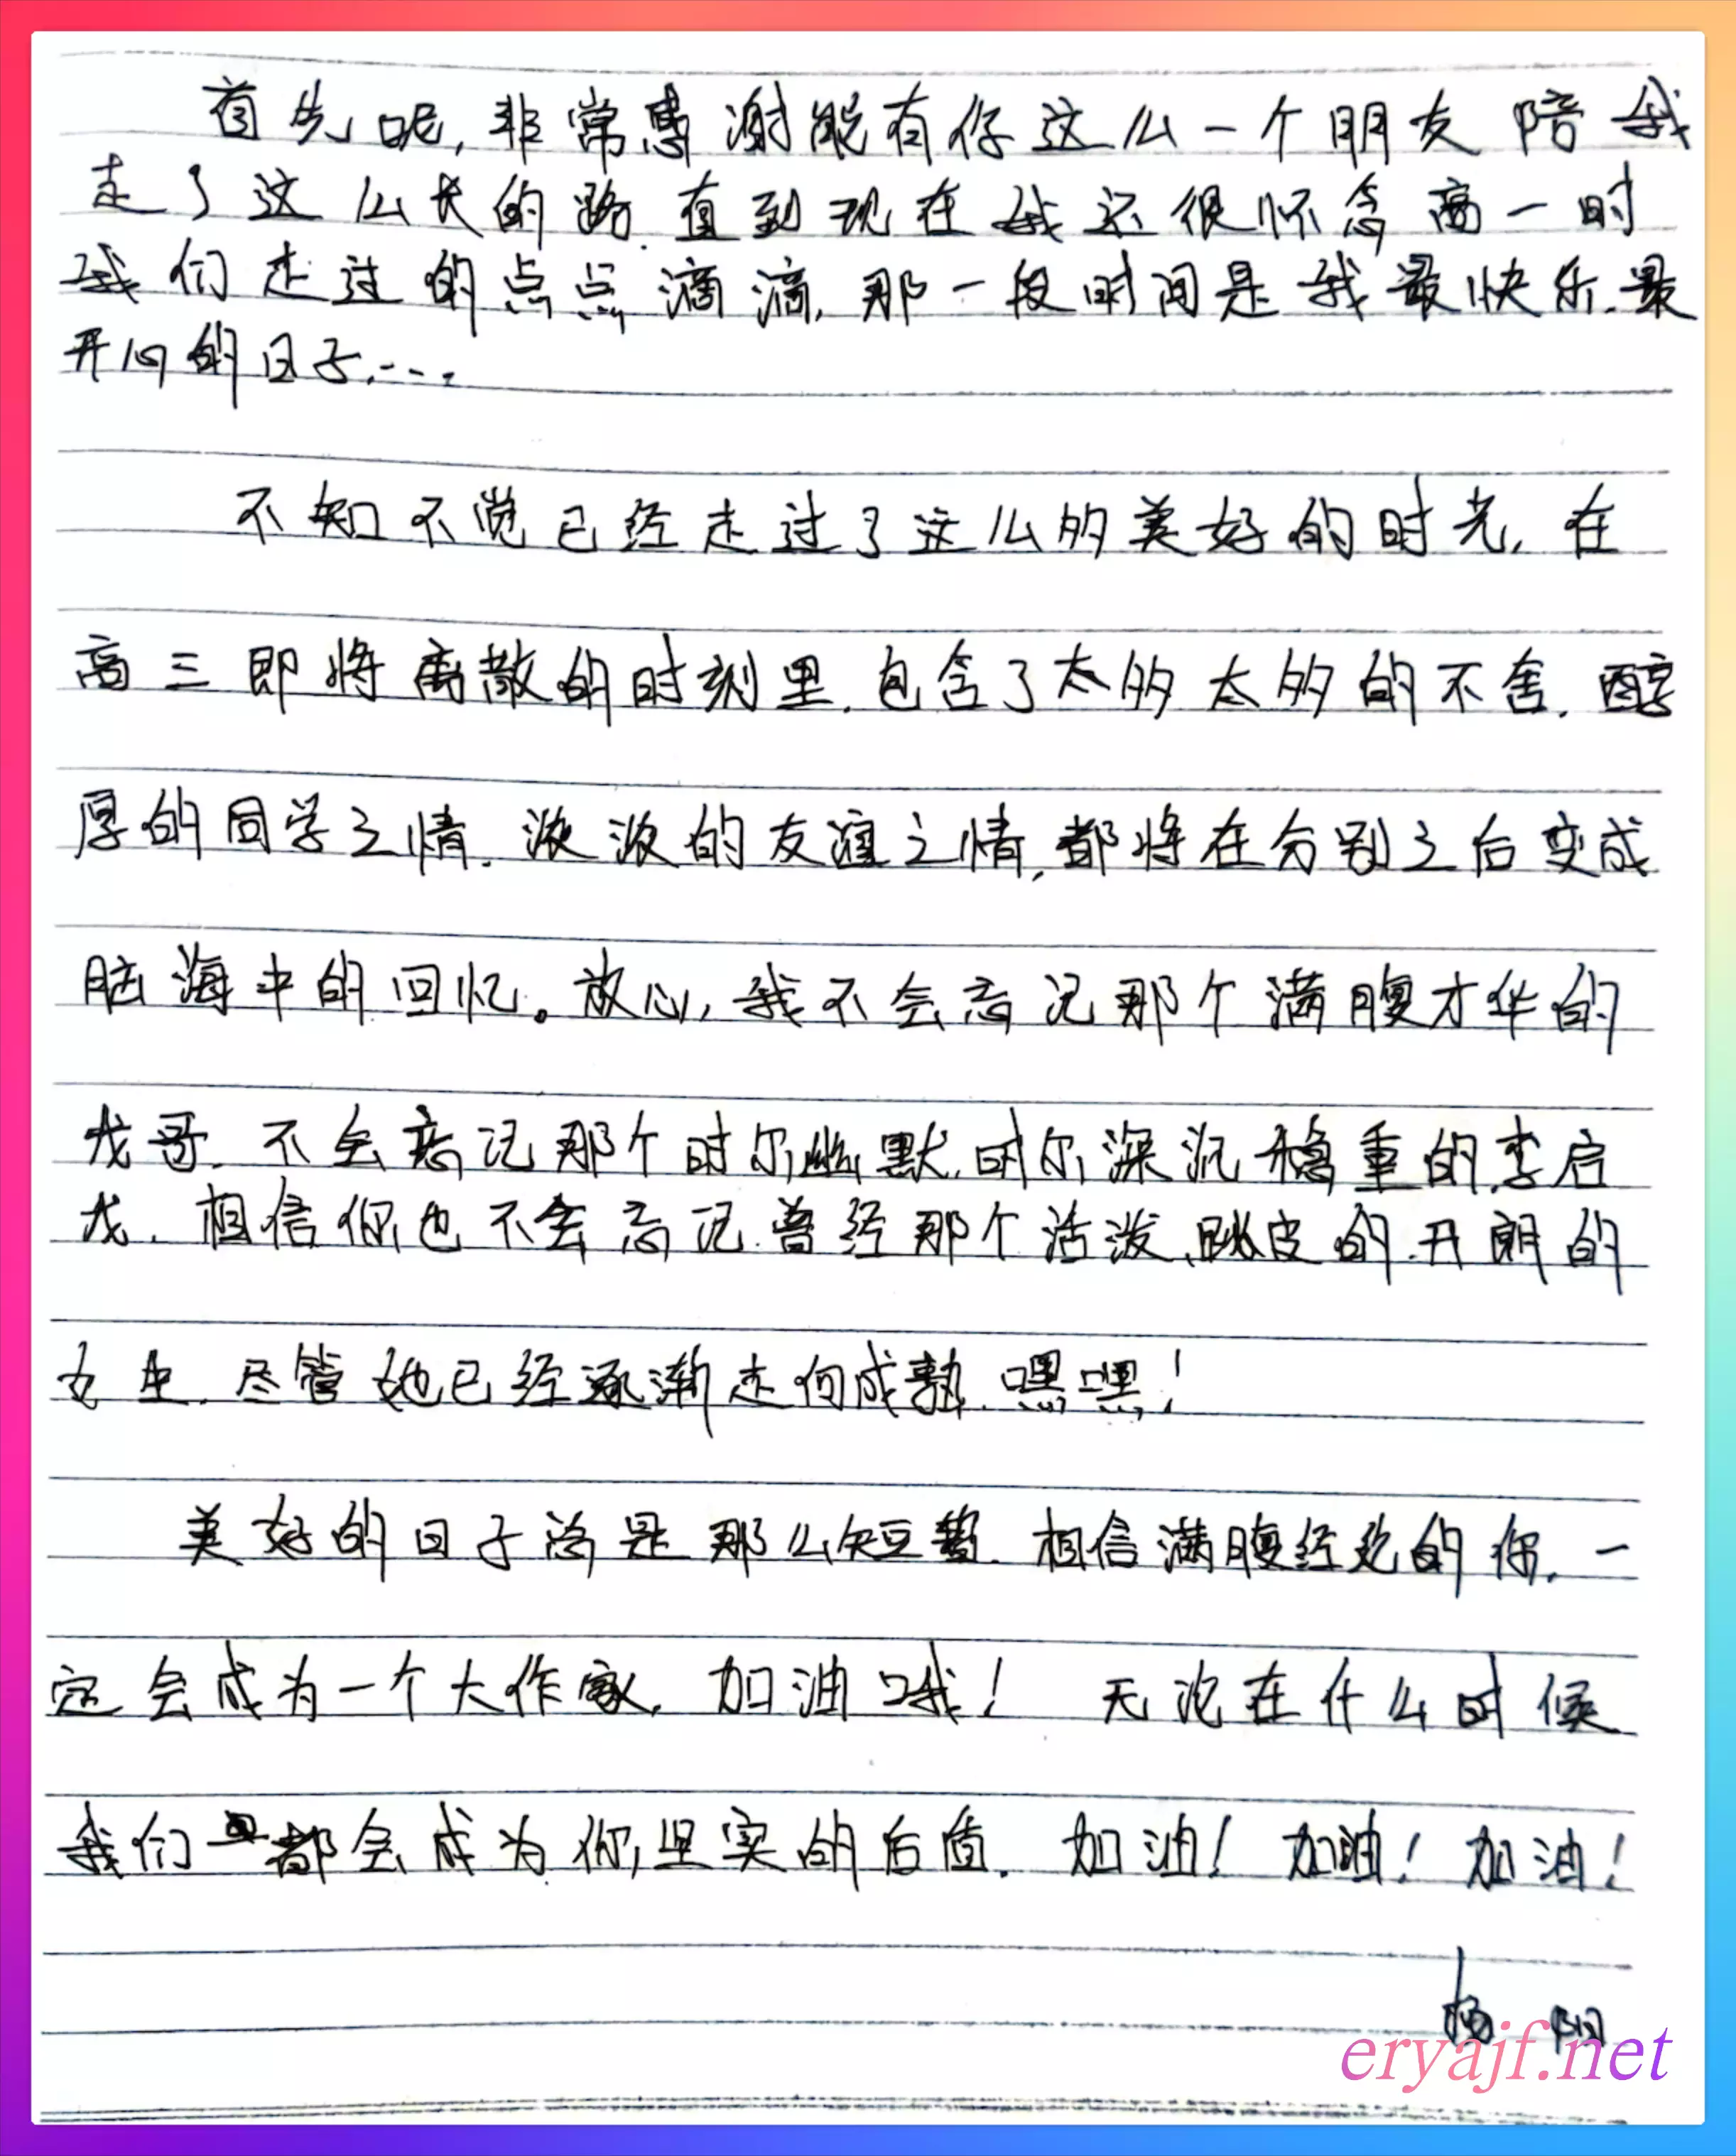 首先呢,非常感谢能有你这么一个朋友陪我
走了这么长的路.直到现在我还很怀念高一时
我们走过的点点滴滴,那一段时间是我最快乐.最
开心的日子....
不知不觉已经走过了这么多美好的时光,在
高三即将离散的时刻里.包含了太多太多的不舍.醇
厚的同学之情.浓浓的友谊之情,都将在分别之后变成
脑海中的回忆。放心,我不会忘记那个满腹才华的
龙哥.不会忘记那个时尔幽默.时尔深沉稳重的李启
龙.相信你也不会忘记曾经那个活泼、跳皮的.开朗的
女生.尽管她已经逐渐走向成熟.嘿嘿!
美好的日子总是那么短暂.相信满腹经纶的你.一
定会成为一个大作家.加油哦! 无论在什么时候
我们都会成为你坚实的后盾.加油!加油!加油!
杨阳
eryajf.net